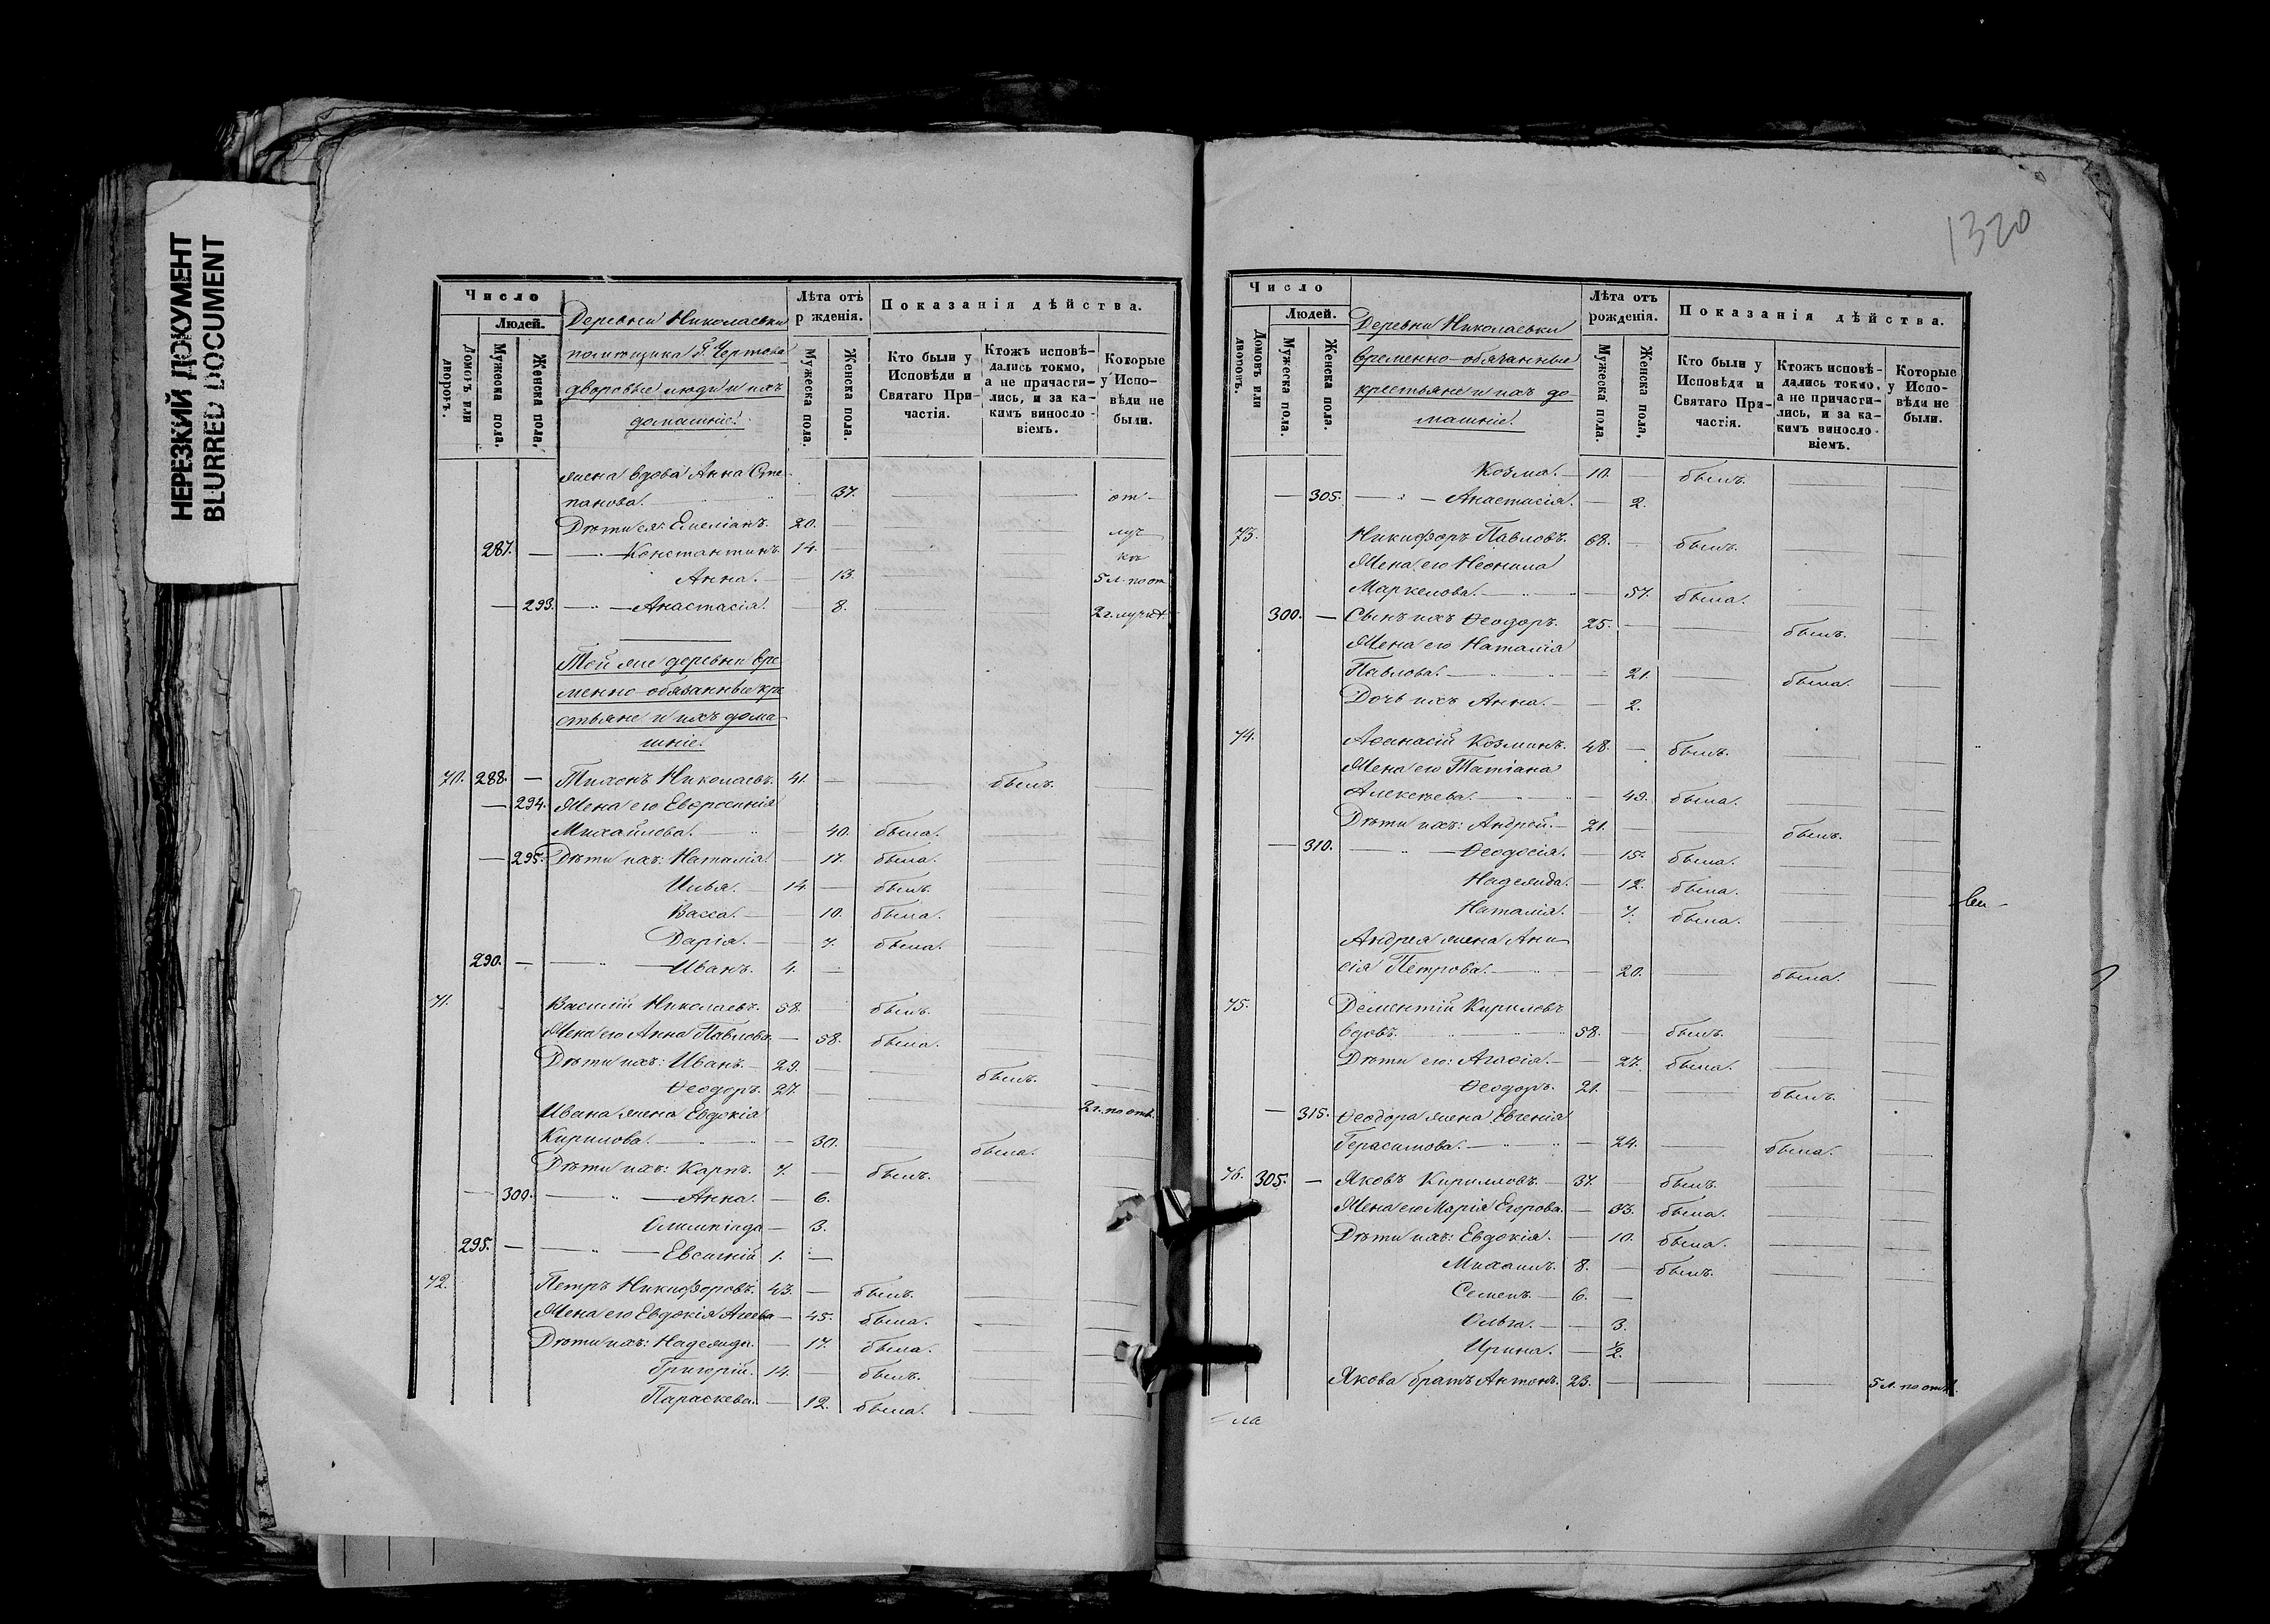 НЕРЕЗКИЙ ДОКУМЕНТ
BLURRED DOCUMENT
Число
Людей.
Домовъ или дворовъ.
Мужеска пола.
Женска пола.
Деревни Николаевки
помѣщика Г. Чертова
дворовые люди и ихъ
домашніе.
Лѣта отъ
р жденія.
Мужеска пола.
Женска пола.
Показанія дѣйства.
Кто были у
Исповѣди и
Святаго При-
частія.
Ктожъ исповѣ-
дались токмо,
а не причасти-
лись, и за ка-
кимъ винословіемъ.
Которые
у Испо-
вѣди не
были.
жена вдова Анна Сте
панова. — 37. от-
Дѣти ея: Емеліанъ. 20. — луч
287. — Константинъ. 14. — кѣ
Анна. — 13. 5 л. по от
— 293. — Анастасія. — 8. 2 г. отлуч
Той же деревни вре
менно-обязанные кре
стьяне и ихъ дома-
шніе.
70. 288. — Тихонъ Николаевъ. 41. — былъ.
— 294. Жена его Евфросинія
Михайлова. — 40. была.
— 295. Дѣти ихъ: Наталія. — 17. была.
Илья. — 14. — былъ.
Васса. — 10. была.
Дарія. — 7. была.
290. — Иванъ. 4. —
71. Василій Николаевъ. 58. — былъ.
Жена его Анна Павлова. — 58. была.
Дѣти ихъ: Иванъ. — 29. — былъ.
Ѳеодоръ. 27. — 2 г. по отл.
Ивана жена Евдокія
Кирилова. — 30. была.
Дѣти ихъ: Карпъ. 7. — былъ.
— 300. — Анна. — 6.
Олимпіада — 3.
295. — Евсигній 1. —
72. Петръ Никифоровъ. 43. — былъ.
Жена его Евдокія Агеева — 45. была.
Дѣти ихъ: Надежда. — 17. была.
Григорій. 14. — былъ.
Параскева. — 12. была.
1320
Число
Людей.
Домовъ или дворовъ.
Мужеска пола.
Женска пола.
Деревни Николаевки
временно-обязанные
крестьяне и ихъ до-
машніе.
Лѣта отъ
рожденія.
Мужеска пола.
Женска пола,
Показанія дѣйства.
Кто были у
Исповѣди и
Святаго При-
частія.
Ктожъ исповѣ-
дались токмо,
а не причасти-
лись, и за ка-
кимъ виносло-
віемъ.
Которые
у Испо-
вѣди не
были.
Козма. — 10. — былъ.
— 305. — Анастасія. — 2.
73. Никифоръ Павловъ. 68. — былъ.
Жена его Неонила
Маркелова. — 57. была.
300. — Сынъ ихъ Ѳеодоръ. 25. — былъ.
Жена его Наталія
Павлова. — 21. была.
Дочь ихъ Анна. — 2.
74. Аѳанасій Козминъ. 48. — былъ.
Жена его Татіана
Алексѣева. — 49. была.
Дѣти ихъ: Андрей. — 21. — былъ.
— 310. — Ѳеодосія. — 15. была.
Надежда. — 12. была.
Наталія. — 7. была.
Андрея жена Ани
сія Петрова. — 20. была.
75. Дементій Кириловъ
вдовъ. 58. — былъ.
Дѣти его: Агафія. — 27. была.
Ѳеодоръ. 21. — былъ.
— 315. Ѳеодора жена Евгенія
Герасимова. — 24. — была.
76. 305. — Яковъ Кирилловъ. — 37. — былъ.
Жена его Марія Егорова. — 33. была.
Дѣти ихъ: Евдокія. — 10. была.
Михаилъ. 8. — былъ.
Семенъ. — 6. —
Ольга. — 3.
Ирина. — 1/2.
Якова братъ Антонъ. 23. — 5 л. по отл.